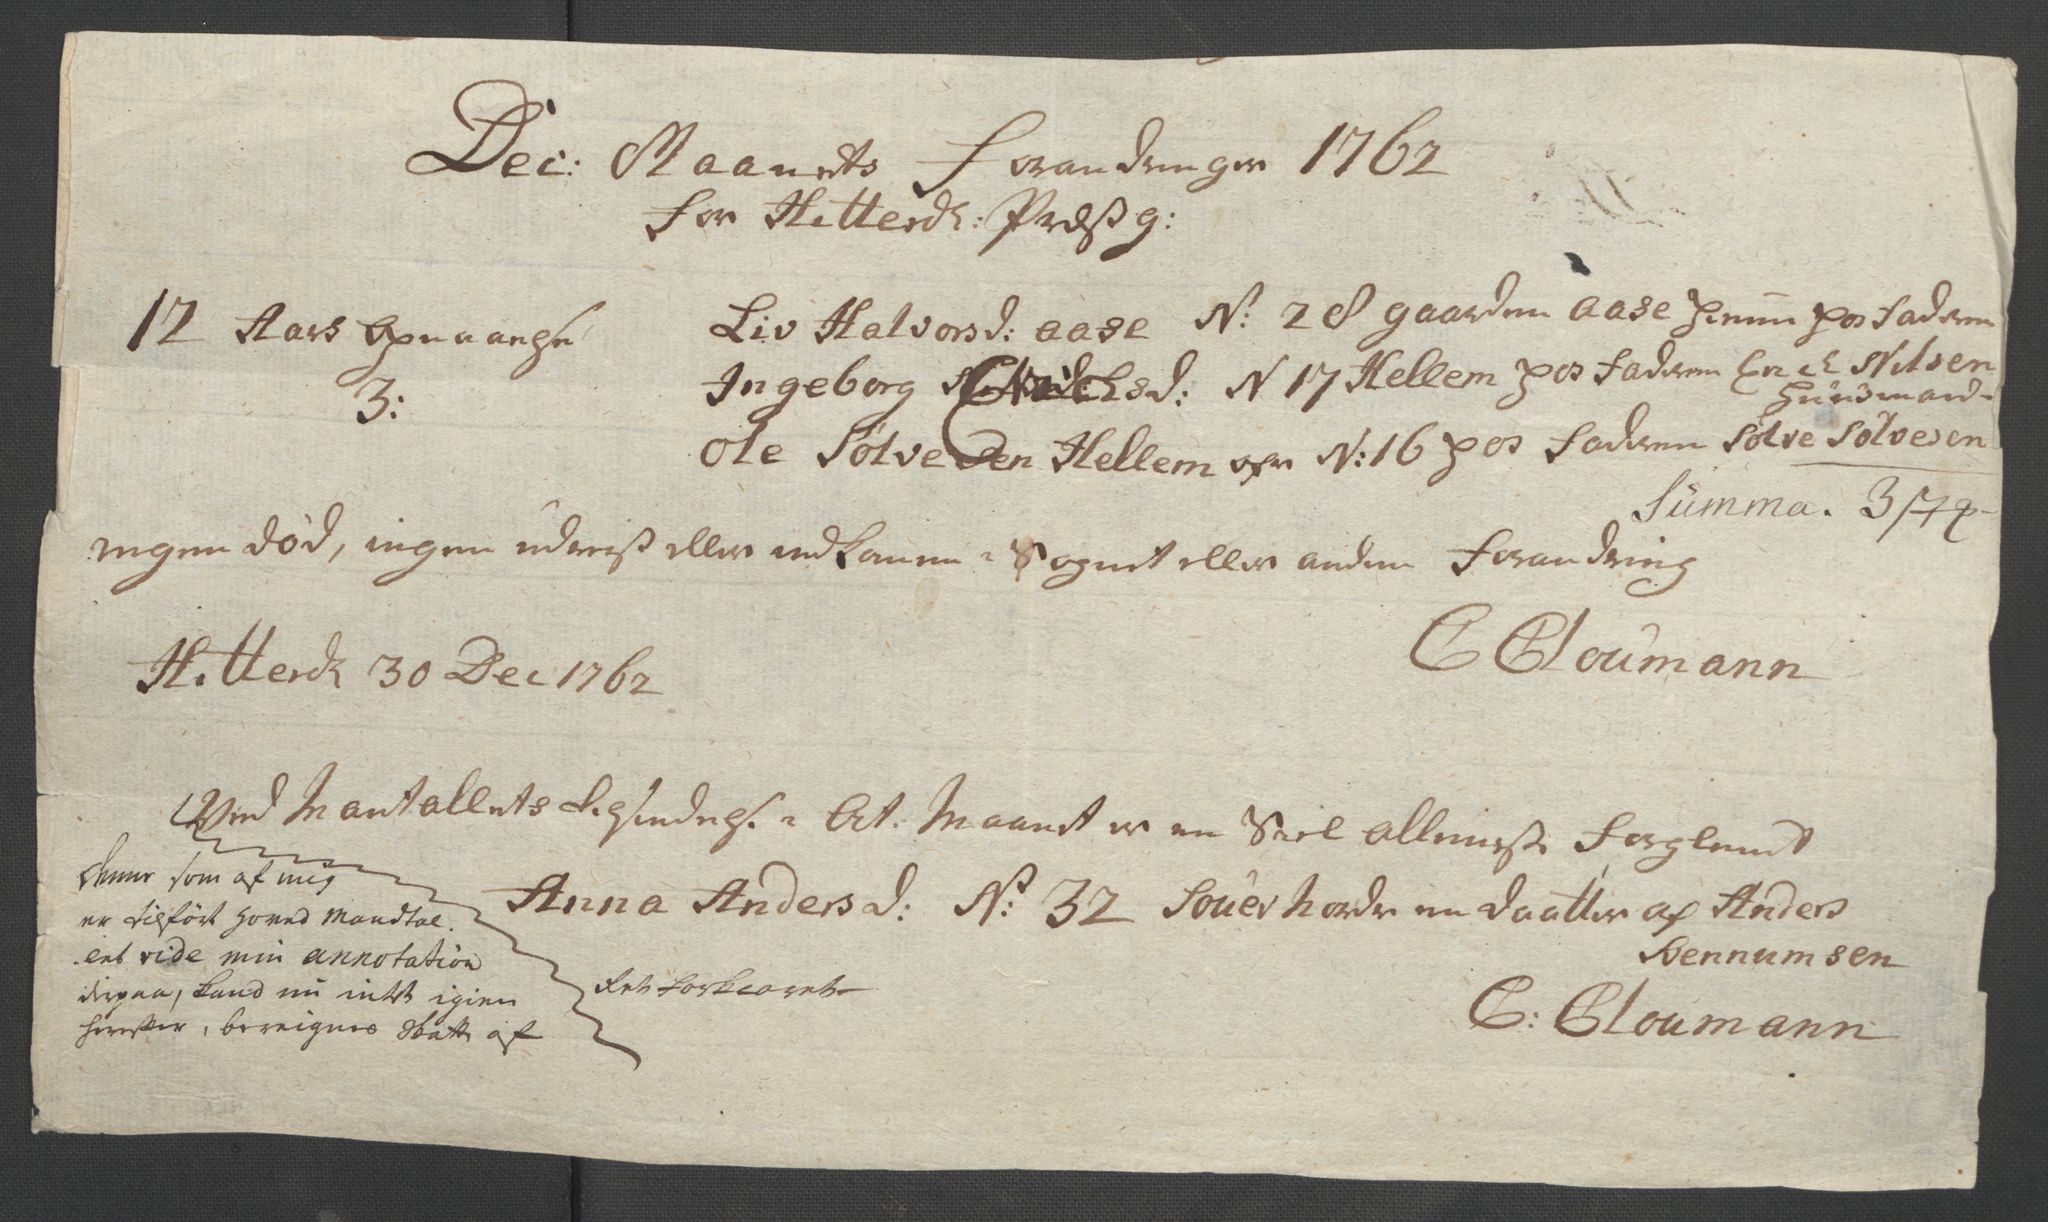 Dec: Maanets Forandringer 1762
for Hitterd: Præstg:
12 Aars Opnaaelse
3:
Liv Halvorsd: aase N: 28 gaarden aase hiemme hos Faderen
Ingeborg Ericksd: N 17 Hellem hos Faderen Erich Nilsen
Huusmand
Ole Sølvesen Hellem øfr N: 16 hos Faderen Sølve Sølvesen
Summa. 3
ingen død, ingen udreist eller indkommen i Sognet eller anden Forandring
C Cloumann
Hitterd 30 Dec 1762
Ved Mantallets i Oct. Maanet er en Siel alleniste forglemt
Anna Andersd: N: 32 Souerhordr en Daatter af Anders
Bennumsen
C: Cloumann
denne som af mig
er tilført hoved Mandtal.
vide min annotation
derpaa, kand nu intet igien
herefter, bereignes Skatt af